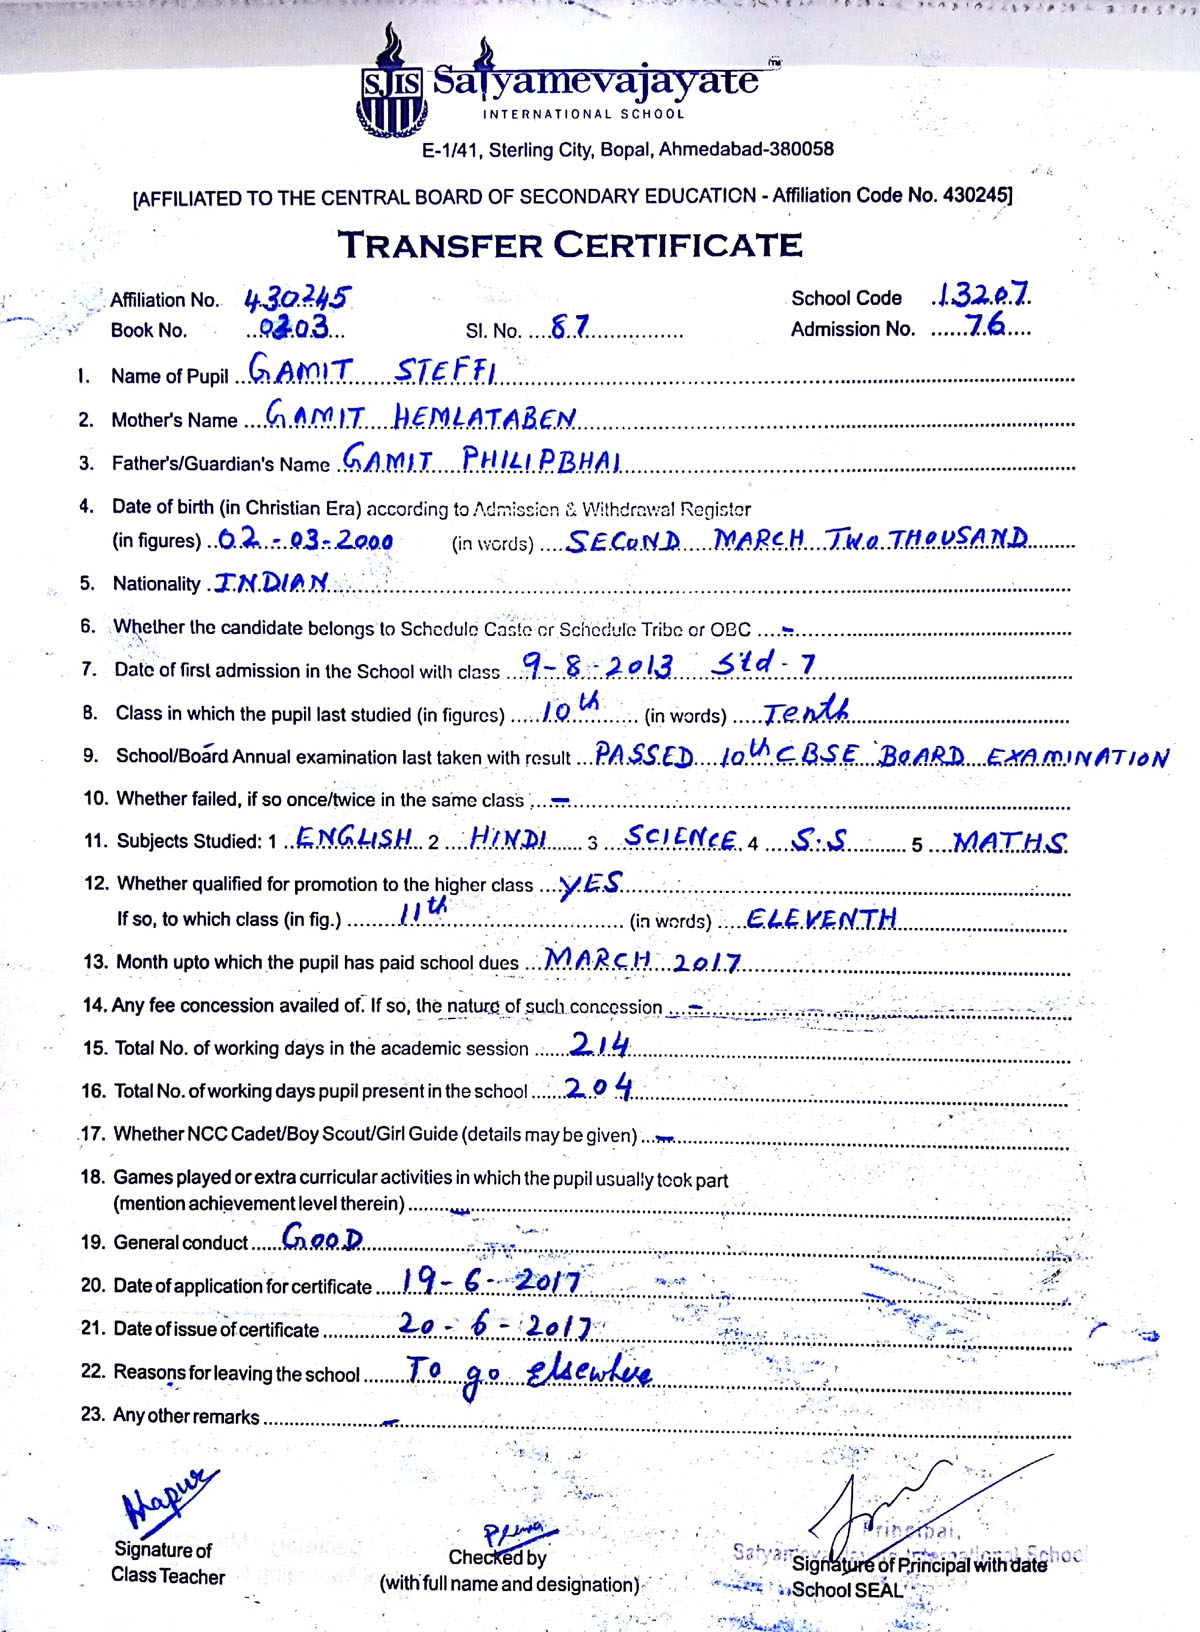 SJIS Satyamevajayate TM
INTERNATIONAL SCHOOL
E-1/41, Sterling City, Bopal, Ahmedabad-380058
[AFFILIATED TO THE CENTRAL BOARD OF SECONDARY EDUCATION - Affiliation Code No. 430245]
TRANSFER CERTIFICATE
Affiliation No. 430245 School Code 13207
Book No. 0203 Sl. No. 87 Admission No. 76
1. Name of Pupil GAMIT STEFFI
2. Mother's Name GAMIT HEMLATABEN
3. Father's/Guardian's Name GAMIT PHILIPBHAI
4. Date of birth (in Christian Era) according to Admission & Withdrawal Register
(in figures) 02-03-2000 (in words) SECOND MARCH TWO THOUSAND
5. Nationality INDIAN
6. Whether the candidate belongs to Schedule Caste or Schedule Tribe or OBC -
7. Date of first admission in the School with class 9-8-2013 Std-7
8. Class in which the pupil last studied (in figures) 10th (in words) Tenth
9. School/Board Annual examination last taken with result PASSED 10th CBSE BOARD EXAMINATION
10. Whether failed, if so once/twice in the same class -
11. Subjects Studied: 1 ENGLISH 2 HINDI 3 SCIENCE 4 S.S 5 MATHS.
12. Whether qualified for promotion to the higher class YES
If so, to which class (in fig.) 11th (in words) ELEVENTH
13. Month upto which the pupil has paid school dues MARCH 2017
14. Any fee concession availed of. If so, the nature of such concession -
15. Total No. of working days in the academic session 214
16. Total No. of working days pupil present in the school 204
17. Whether NCC Cadet/Boy Scout/Girl Guide (details may be given) -
18. Games played or extra curricular activities in which the pupil usually took part
(mention achievement level therein) -
19. General conduct GOOD
20. Date of application for certificate 19-6-2017
21. Date of issue of certificate 20-6-2017
22. Reasons for leaving the school To go Elsewhere
23. Any other remarks -
Principal,
Satyamevajayate International School
Signature of Checked by Signature of Principal with date
Class Teacher (with full name and designation) School SEAL